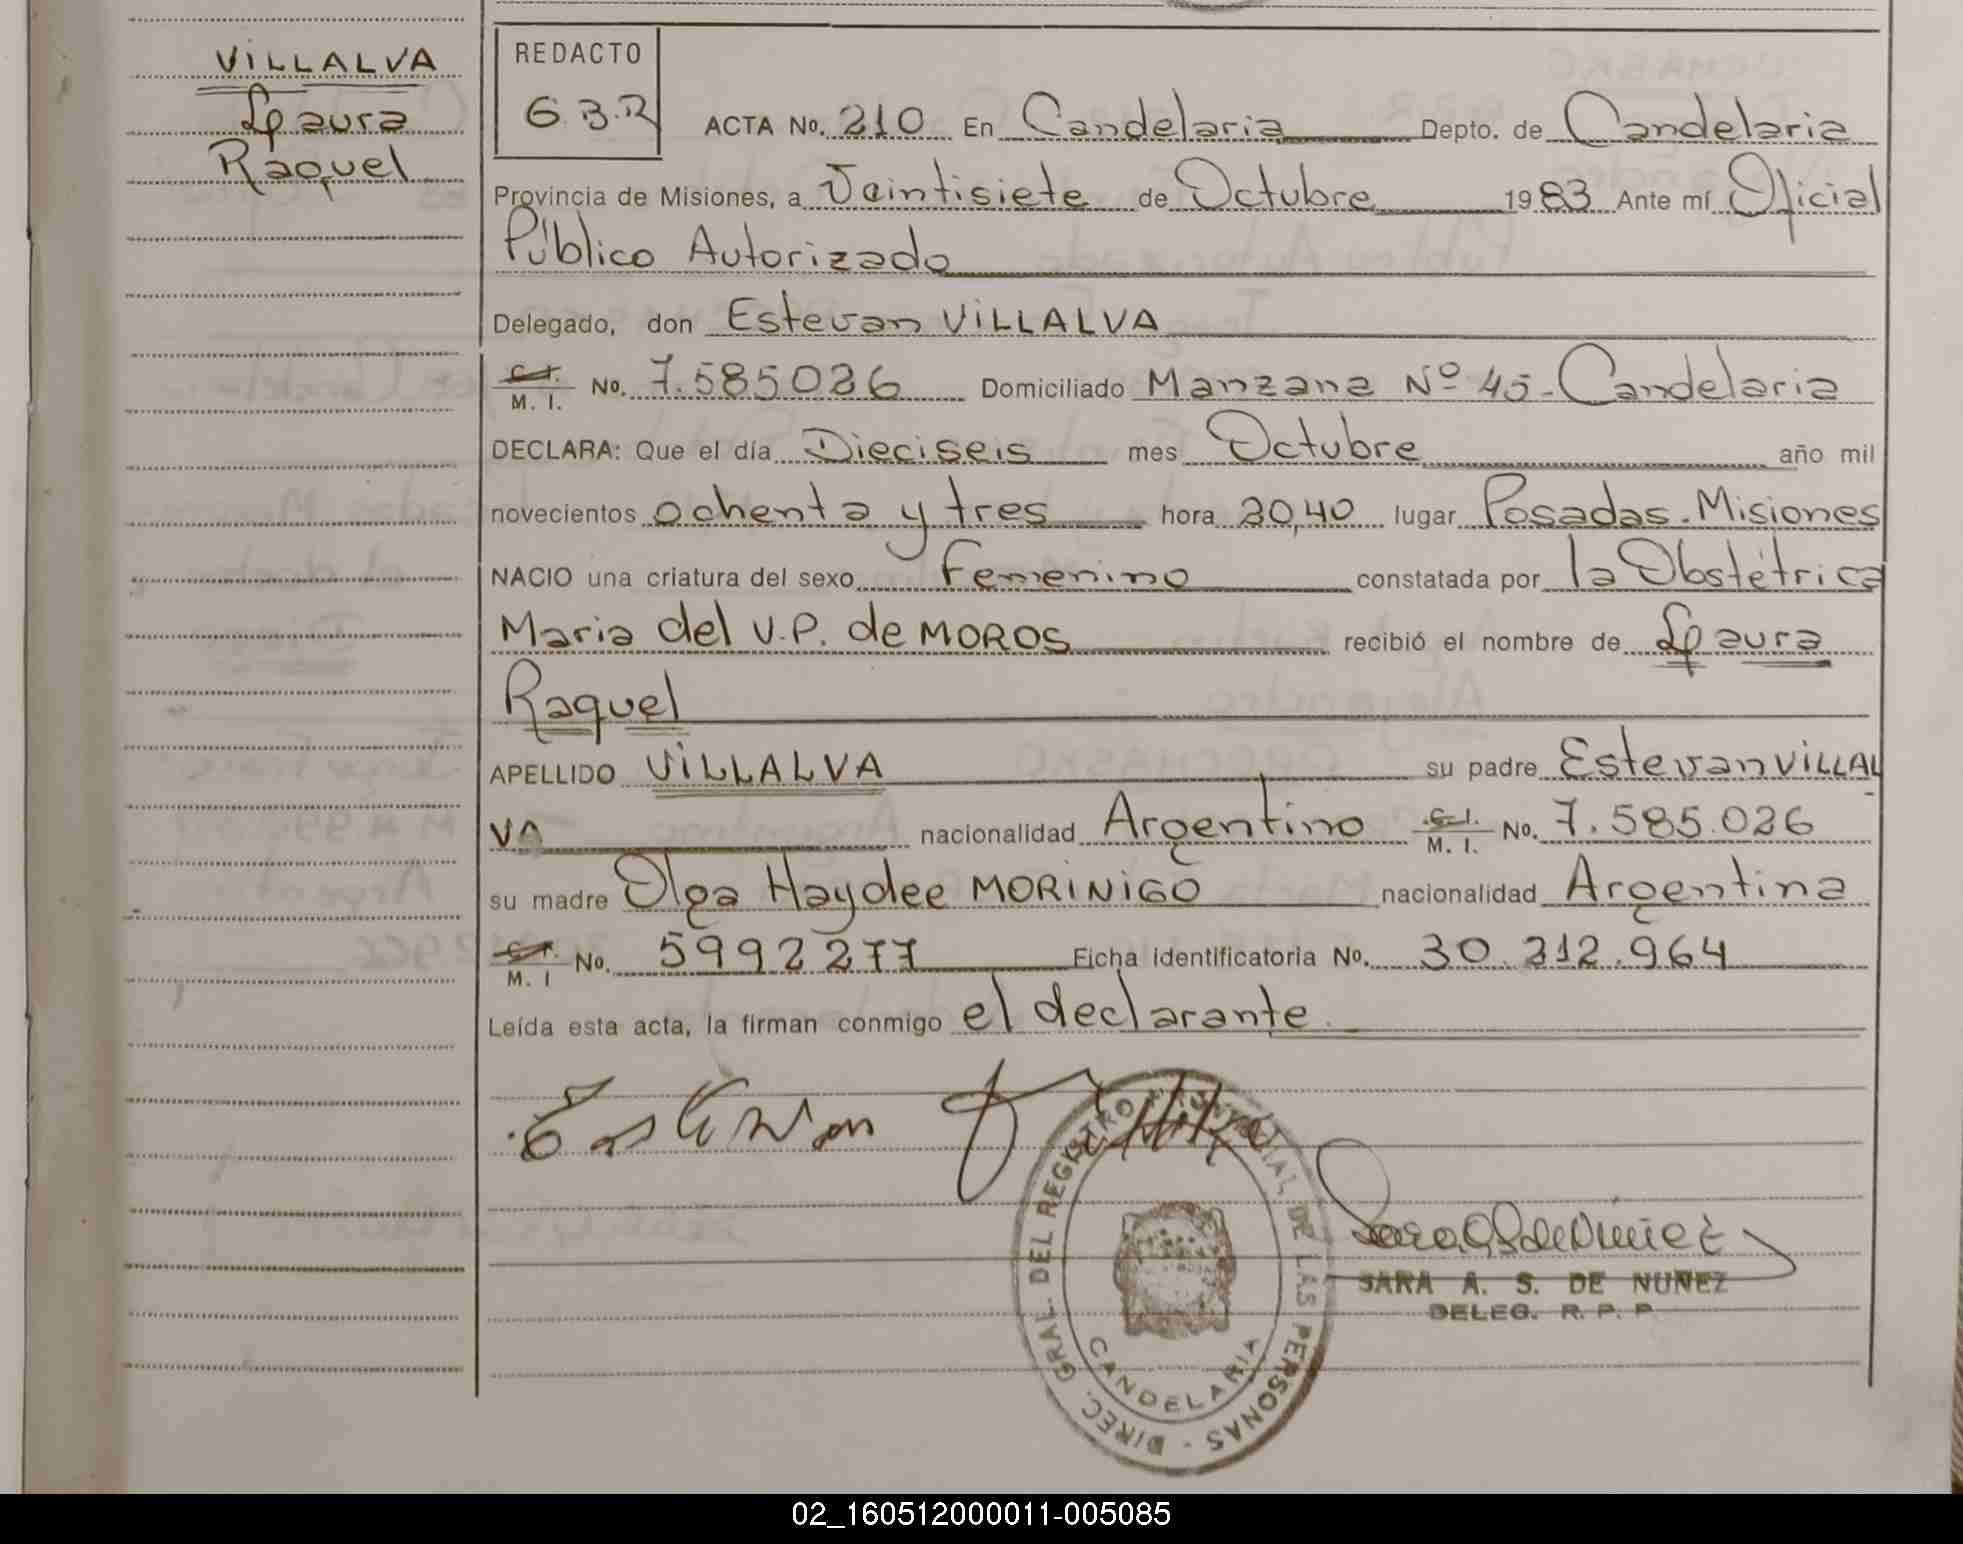 VILLALVA
Laura
Raquel
REDACTO
G.B.R
ACTA No. 210 En Candelaria Depto. de Candelaria
Provincia de Misiones, a Veintisiete de Octubre 1983 Ante mí Oficial
Público Autorizado
Delegado, don Estevan VILLALVA
C.I. M. I. No. 7.585026 Domiciliado Manzana Nº 45 - Candelaria
DECLARA: Que el día Dieciseis mes Octubre año mil
novecientos ochenta y tres hora 20,40 lugar Posadas. Misiones
NACIO una criatura del sexo Femenino constatada por la Obstétrica
Maria del V.P. de MOROS recibió el nombre de Laura
Raquel
APELLIDO VILLALVA su padre Estevan VILLAL
VA nacionalidad Argentino C.I. M. I. No. 7.585.026
su madre Olga Haydee MORINIGO nacionalidad Argentina
C.I. M. I No. 5992277 Ficha identificatoria No. 30.212.964
Leída esta acta, la firman conmigo el declarante.
Estevan
DIREC. GRAL. DEL REGISTRO PROVINCIAL DE LAS PERSONAS -
CANDELARIA
SARA A. S. DE NUÑEZ
DELEG. R. P. P
02_160512000011-005085